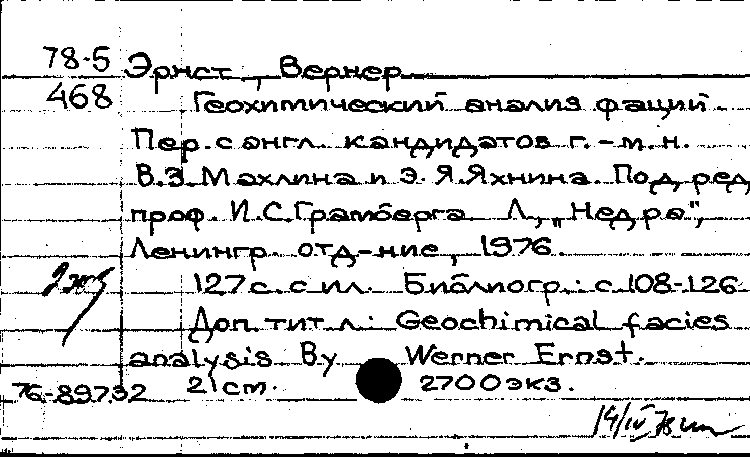 78-5 Эрнст, Вернер
468 Геохимический анализ фаций.
Пер. с англ. кандидатов г.-м.н.
В.З. Махлина и Э.Я. Яхнина. Под ред.
проф. И.С. Грамберга. Л., „Недра",
Ленингр. отд-ние, 1976.
127 с. с ил. Библиогр.: с 108-126
Доп. тит. л.: Geochimical facies
analysis By Werner Ernst.
76-89732 21 cm. 2700 экз.
19/IV 78